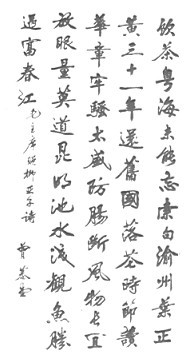 飲茶粤海未能忘索句渝州葉正
黄三十一年還舊國落花時節讀
華章牢騷太盛防腸斷風物長宜
放眼量莫道昆明池水淺觀魚勝
過富春江
毛主席贈柳亞子詩